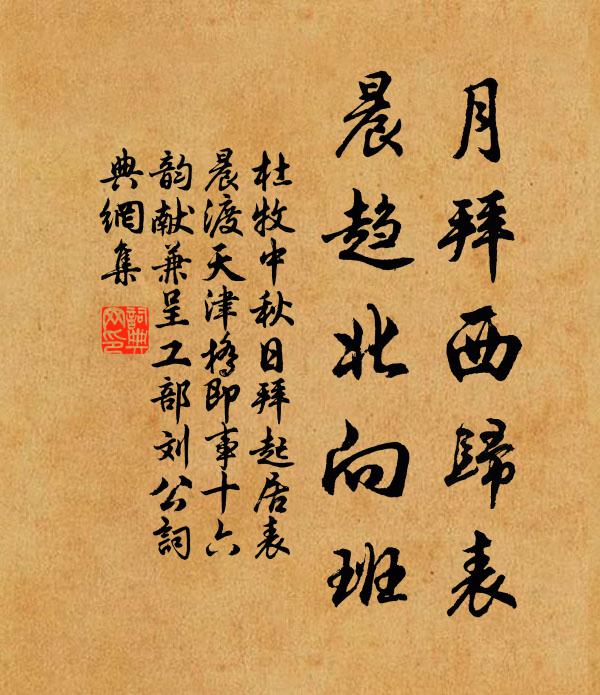 月拜西歸表
晨趋北向班
杜牧中秋日拜起居表
晨渡天津橋即事十六
韵献兼呈工部刘公詞
典網集
詞典網印